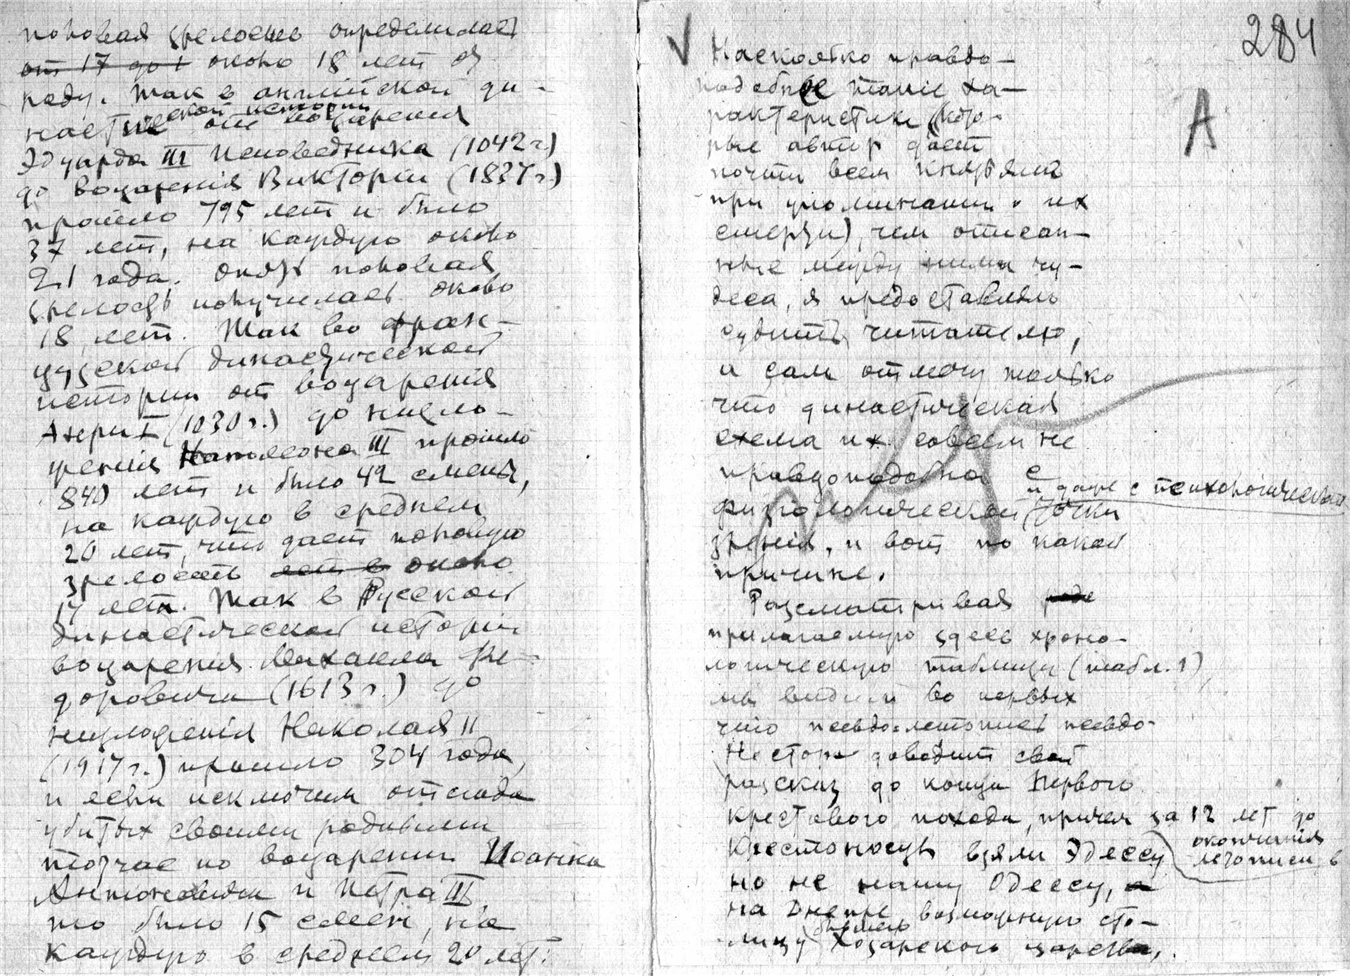 половая зрелость определилась
от 17 до 1 около 18 лет от
роду. Так в английской ди-
настической истории от воцарения
Эдуарда III Исповедника (1042 г.)
до воцаренія Викторіи (1837 г.)
прошло 795 лет и было
37 лет, на каждую около
21 года. Опять половая
зрелость получилась около
18 лет. Так во фран-
цузской династической
истории от воцаренія
Анри I (1030 г.) до низло-
женія Наполеона III прошло
840 лет и было 42 смены,
на каждую в среднем
20 лет, что дает половую
зрелость лет в около
17 лет. Так в Русской
династической исторіи
воцаренія Михаила Фе-
доровича (1613 г.) до
низложенія Николая II
(1917 г.) прошло 304 года,
и если исключим отсюда
убитых своими родными
тотчас по воцарении Иоанна
Антоновича и Петра III,
то было 15 смен, на
каждую в среднем 20 лет.
284
А
Насколько правдо-
подобнее такіе ха-
рактеристики (кото-
рые автор дает
почти всем князьям
при упоминании их
смерти), чем описан-
ные между ними чу-
деса, я предоставляю
судить читателю,
и сам отмечу только
что династическая
схема их совсем не
правдоподобна с
физіологической и даже с психологической точки
зренія, и вот по какой
причине.
Разсматривая
прилагаемую здесь хроно-
логическую таблицу (табл. 1),
мы видим во первых
что псевдолетопись псевдо-
Нестора доводит свой
разсказ до конца Первого
Крестового похода, причем за 12 лет до
окончанія летописи
Крестоносцы взяли Эдессу
но не нашу Одессу, а
на Днепре, возможную сто-
лицу бывшего Хозарского царства.